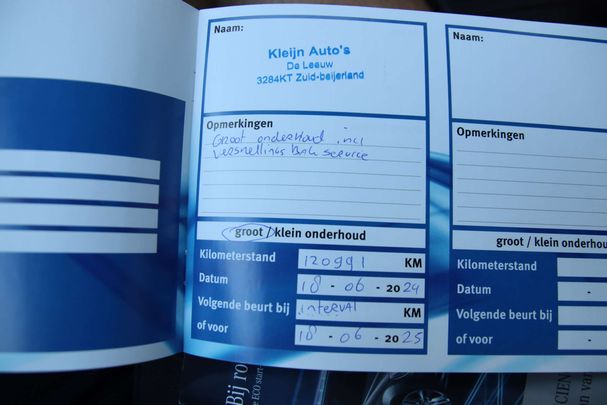 Naam:
Kleijn Auto's
De Leeuw
3284KT Zuid-beijerland
Opmerkingen
Groot onderhoud incl
versnellings bak service
groot / klein onderhoud
Kilometerstand 120991 KM
Datum 18 - 06 - 2024
Volgende beurt bij interval KM
of voor 18 - 06 - 2025
Naam:
Opmerkingen
groot / klein onderhou
Kilometerstand
Datum -
Volgende beurt bij
of voor -
Bij ro
e ECO start-
CIEN
an van